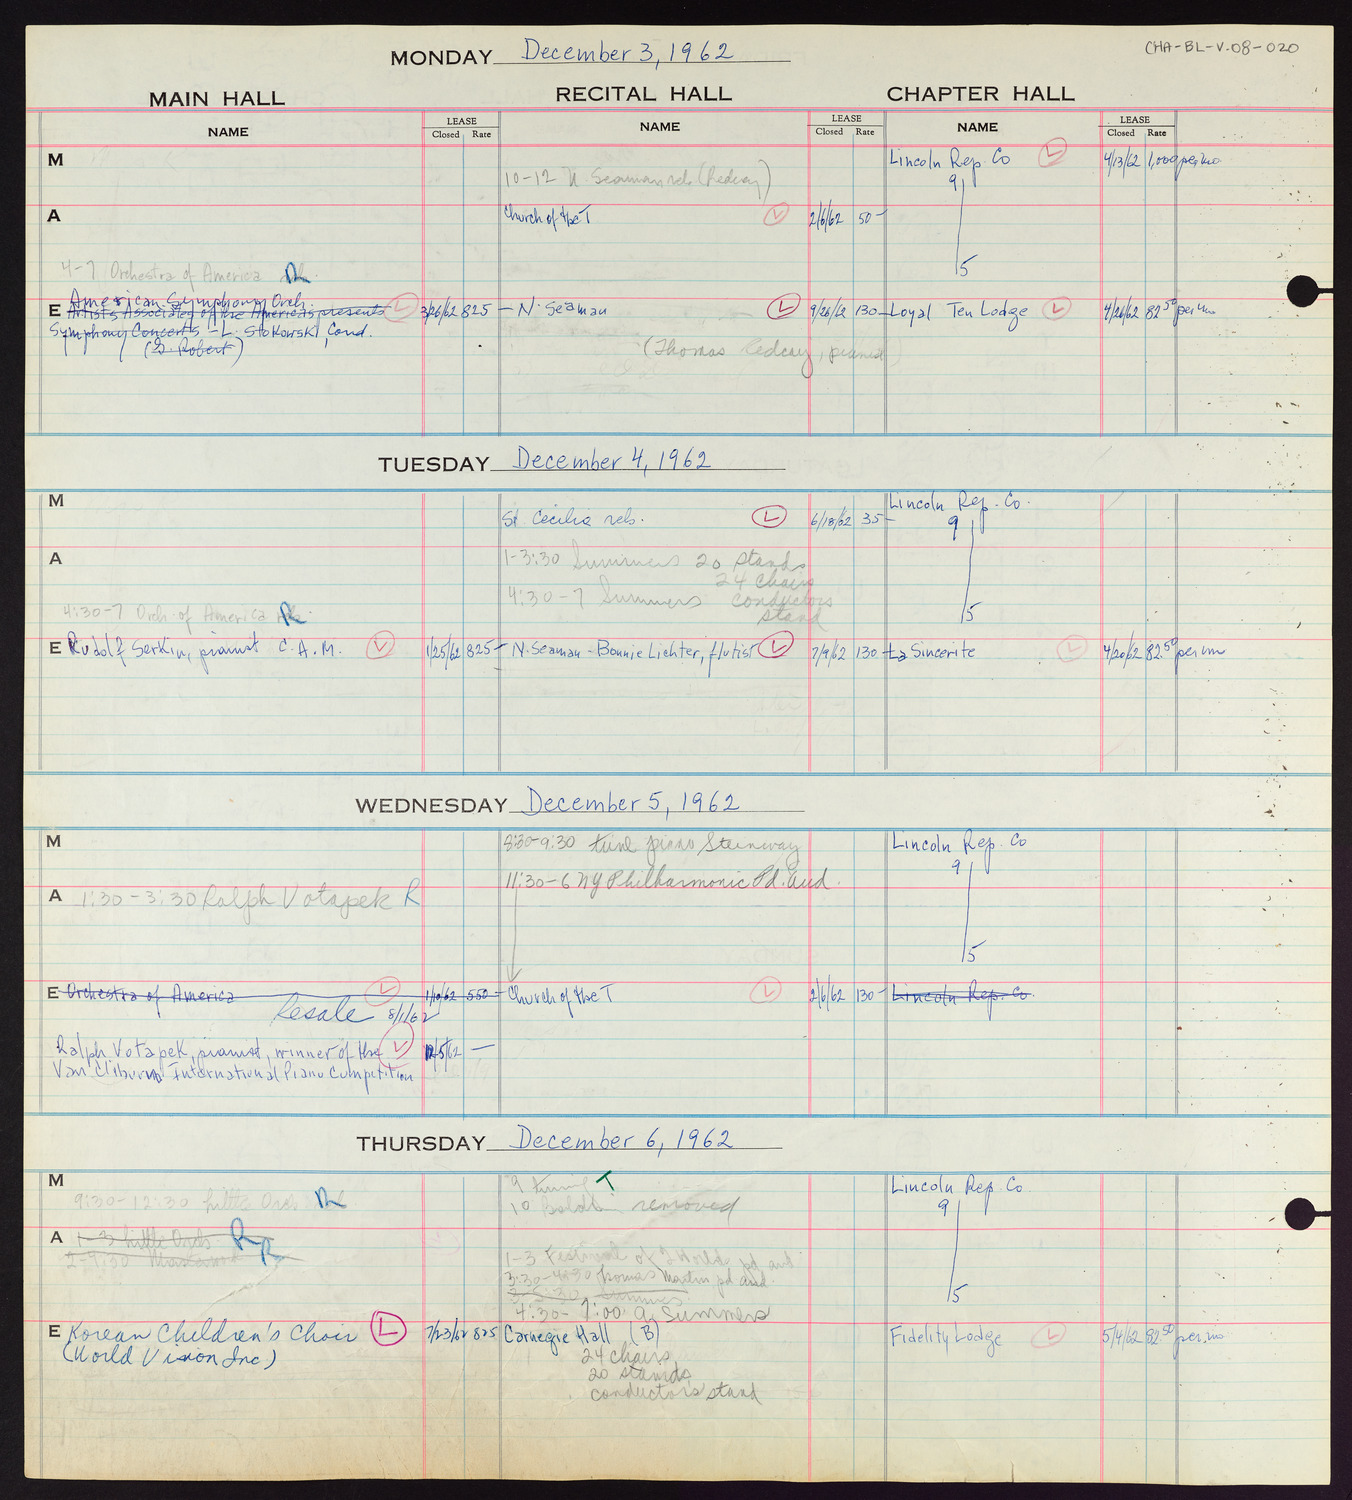 CHA-BL-V.08-020
MONDAY December 3, 1962
MAIN HALL RECITAL HALL CHAPTER HALL
NAME LEASE Closed Rate NAME LEASE Closed Rate NAME LEASE Closed Rate
M
Lincoln Rep. Co L 4/13/62 1,000 per mo
10-12 N. Seaman reh (Redcay)
9
A
Church of the T L 2/6/62 50-
5
4-7 Orchestra of America R
American Symphony Orch.
E Artists Associates of the Americas presents L 3/26/62 825- N. Seaman L 9/26/62 130- Loyal Ten Lodge L 4/26/62 82.50 per mo
Symphony Concerts - L. Stokowski, Cond.
(G. Robert)
(Thomas Redcay, pianist)
TUESDAY December 4, 1962
M
Lincoln Rep. Co.
St Cecilia reh. L 6/18/62 35-
9
A
1-3:30 Summers 20 stands
24 chairs
4:30-7 Summers conductors
stand
5
4:30-7 Orch. of America R
E Rudolf Serkin, pianist C.A.M. L 1/25/62 825- N. Seaman - Bonnie Lichter, flutist L 7/9/62 130- La Sincerite L 4/20/62 82.50 per mo
WEDNESDAY December 5, 1962
M
8:30-9:30 tune piano Steinway
Lincoln Rep. Co
9
11:30-6 NY Philharmonic Pd. Aud.
A 1:30-3:30 Ralph Votapek R
5
E Orchestra of America L 1/10/62 550- Church of the T L 2/6/62 130- Lincoln Rep. Co.
Resale 8/1/62
Ralph Votapek, pianist, winner of the L 12/5/62 -
Van Cliburn International Piano Competition
THURSDAY December 6, 1962
M
9 tuning T
Lincoln Rep. Co
9:30-12:30 Little Orch R
10 removed
9
A 1-3 Little Orch R
R
1-3 Festival of 2 Worlds pd aud
3:30-4:30 Thomas Martin pd aud.
5
4:30-7:00 Summers
E Korean Children's Choir L 7/23/62 825 Carnegie Hall (B) Fidelity Lodge L 5/4/62 82.50 per mo
(World Vision Inc)
24 chairs
20 stands
conductors stand